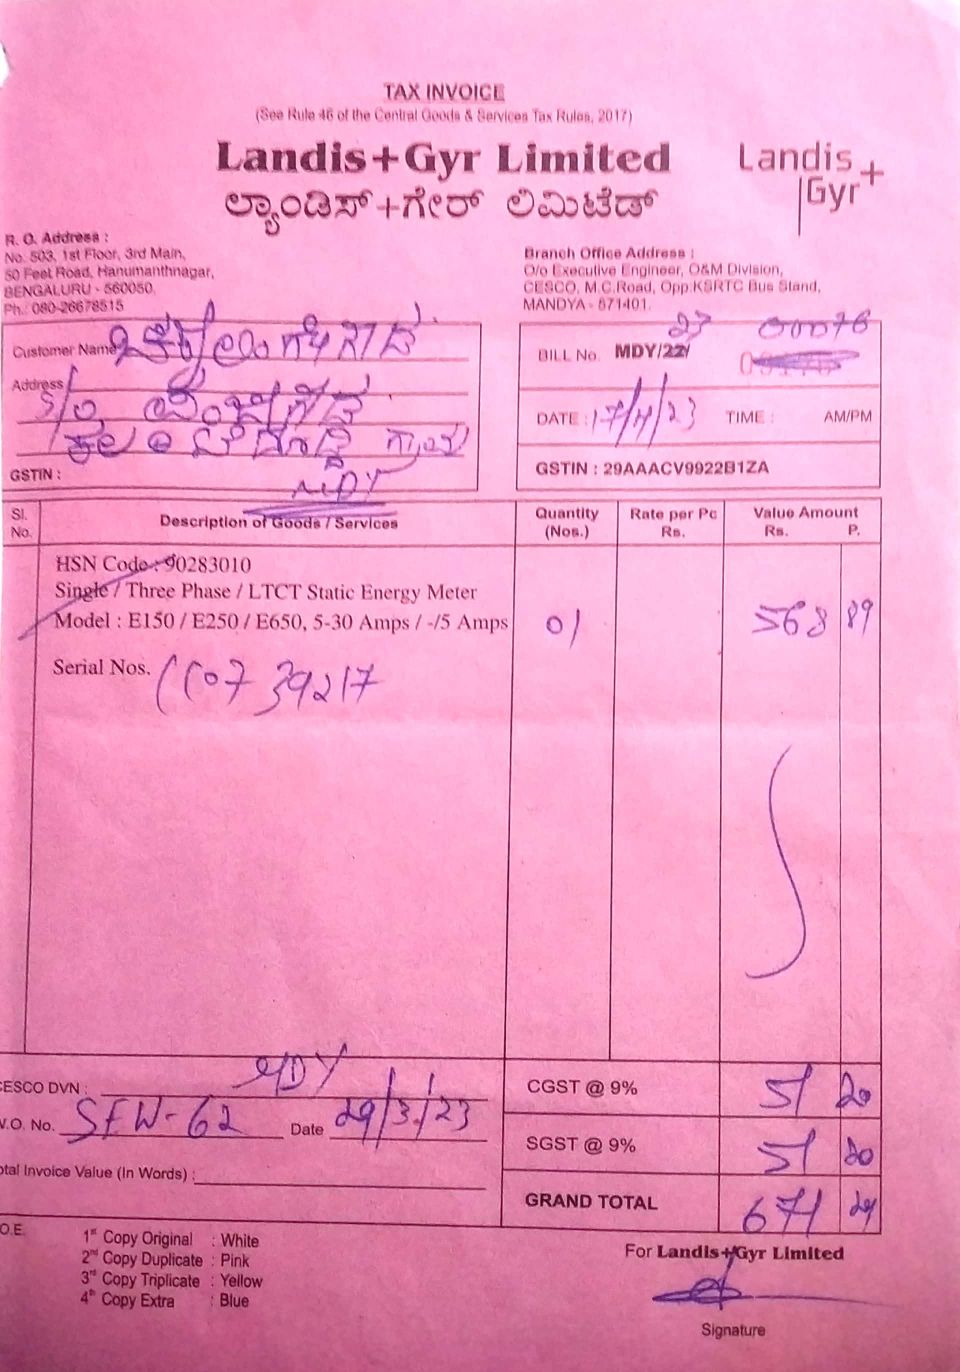 TAX INVOICE
(See Rule 46 of the Central Goods & Services Tax Rules, 2017)
Landis+Gyr Limited
ಲ್ಯಾಂಡಿಸ್+ಗೇರ್ ಲಿಮಿಟೆಡ್
Landis
Gyr+
R. O. Address :
No. 503, 1st Floor, 3rd Main,
50 Feet Road, Hanumanthnagar,
BENGALURU - 560050.
Ph.: 080-26678515
Branch Office Address :
O/o Executive Engineer, O&M Division,
CESCO, M.C.Road, Opp.KSRTC Bus Stand,
MANDYA - 571401.
Customer Name
Address
S/o
GSTIN :
MDY
23 00076
BILL No. MDY/22/
DATE : 17/4/23 TIME : AM/PM
GSTIN : 29AAACV9922B1ZA
Sl. No. Description of Goods / Services Quantity (Nos.) Rate per Pc Rs. Value Amount Rs. P.
HSN Code : 90283010
Single / Three Phase / LTCT Static Energy Meter
Model : E150 / E250 / E650, 5-30 Amps / -/5 Amps 01 568 89
Serial Nos. 39217
CESCO DVN : MDY
W.O. No. SFW-62 Date 29/3/23
Total Invoice Value (In Words) :
CGST @ 9% 51 20
SGST @ 9% 51 20
GRAND TOTAL 671 29
O.E.
1st Copy Original : White
2nd Copy Duplicate : Pink
3rd Copy Triplicate : Yellow
4th Copy Extra : Blue
For Landis+Gyr Limited
Signature